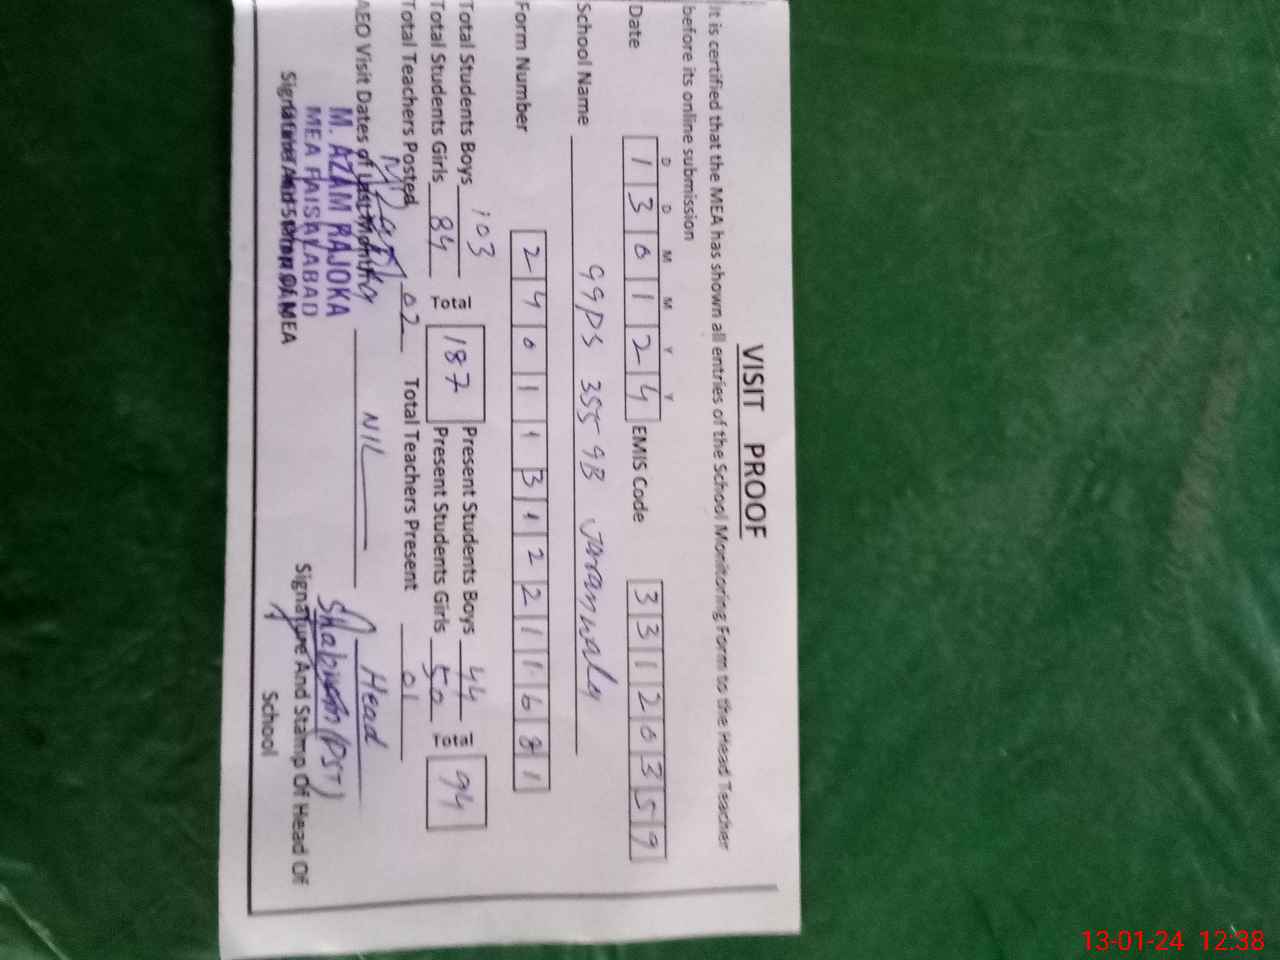 VISIT PROOF
It is certified that the MEA has shown all entries of the School Monitoring Form to the Head Teacher
before its online submission
D D M M Y Y
Date 1 3 0 1 2 4 EMIS Code 3 3 1 2 0 3 5 9
School Name GGPS 355 GB Jaranwala
Form Number 2 4 0 1 1 3 1 2 2 1 1 6 8 1
Total Students Boys 103 Total 187 Present Students Boys 44 Total 94
Total Students Girls 84 Present Students Girls 50
Total Teachers Posted 02 Total Teachers Present 01
AEO Visit Dates of Last Month NIL Head
M. AZAM RAJOKA
MEA FAISALABAD
(PST)
Signature And Stamp Of MEA Signature And Stamp Of Head Of
School
13-01-24 12:38